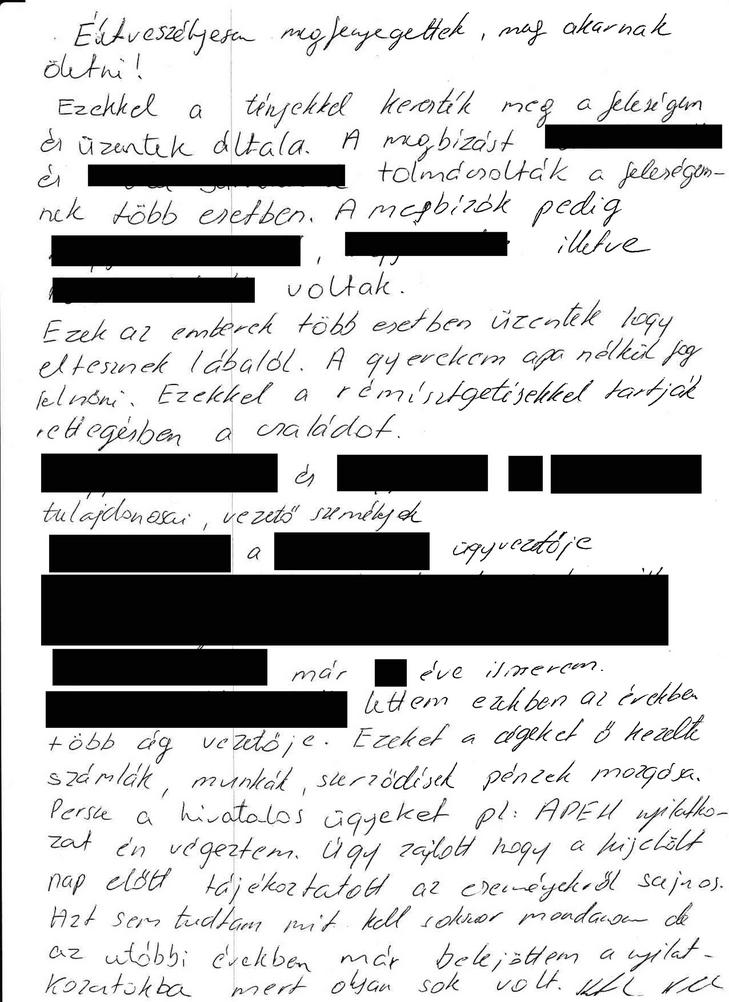 Életveszélyesen megfenyegettek, meg akarnak
öletni!
Ezekkel a tényekkel keresték meg a feleségem
és üzentek általa. A megbízást
és tolmácsolták a feleségem-
nek több esetben. A megbízók pedig
, illetve
voltak.
Ezek az emberek több esetben üzentek hogy
eltesznek lábalól. A gyerekem apa nélkül fog
felnőni. Ezekkel a rémísztgetésekkel tartják
rettegésben a családot.
és
tulajdonosai, vezető személyek
a ügyvezetője
már éve ismerem.
lettem ezekben az években
több cég vezetője. Ezeket a cégeket ő kezelte
számlák, munkák, szerződések pénzek mozgása.
Persze a hivatalos ügyeket pl: APEH nyilatko-
zat én végeztem. Úgy zajlott hogy a kijelölt
nap előtt tájékoztatott az eseményekről sajnos.
Azt sem tudtam mit kell sokszor mondanom de
az utóbbi években már belejöttem a nyilat-
kozatokba mert olyan sok volt.